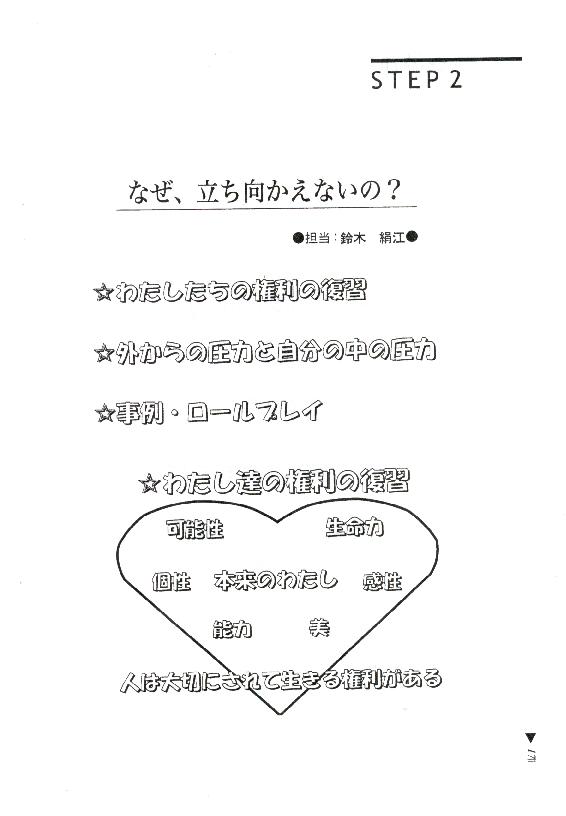 STEP 2
なぜ、立ち向かえないの?
●担当:鈴木 絹江●
☆わたしたちの権利の復習
☆外からの圧力と自分の中の圧力
☆事例・ロールプレイ
☆わたし達の権利の復習
可能性 生命力
個性 本来のわたし 感性
能力 美
人は大切にされて生きる権利がある
▼